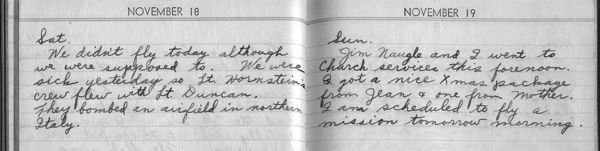 NOVEMBER 18
Sat.
We didn't fly today although
we were supposed to. We were
sick yesterday so Lt. Hornstein's
crew flew with Lt. Duncan.
They bombed an airfield in northern
Italy.
NOVEMBER 19
Sun.
Jim Naugle and I went to
Church services this forenoon.
I got a nice Xmas package
from Jean & one from Mother.
I am scheduled to fly a
mission tomorrow morning.